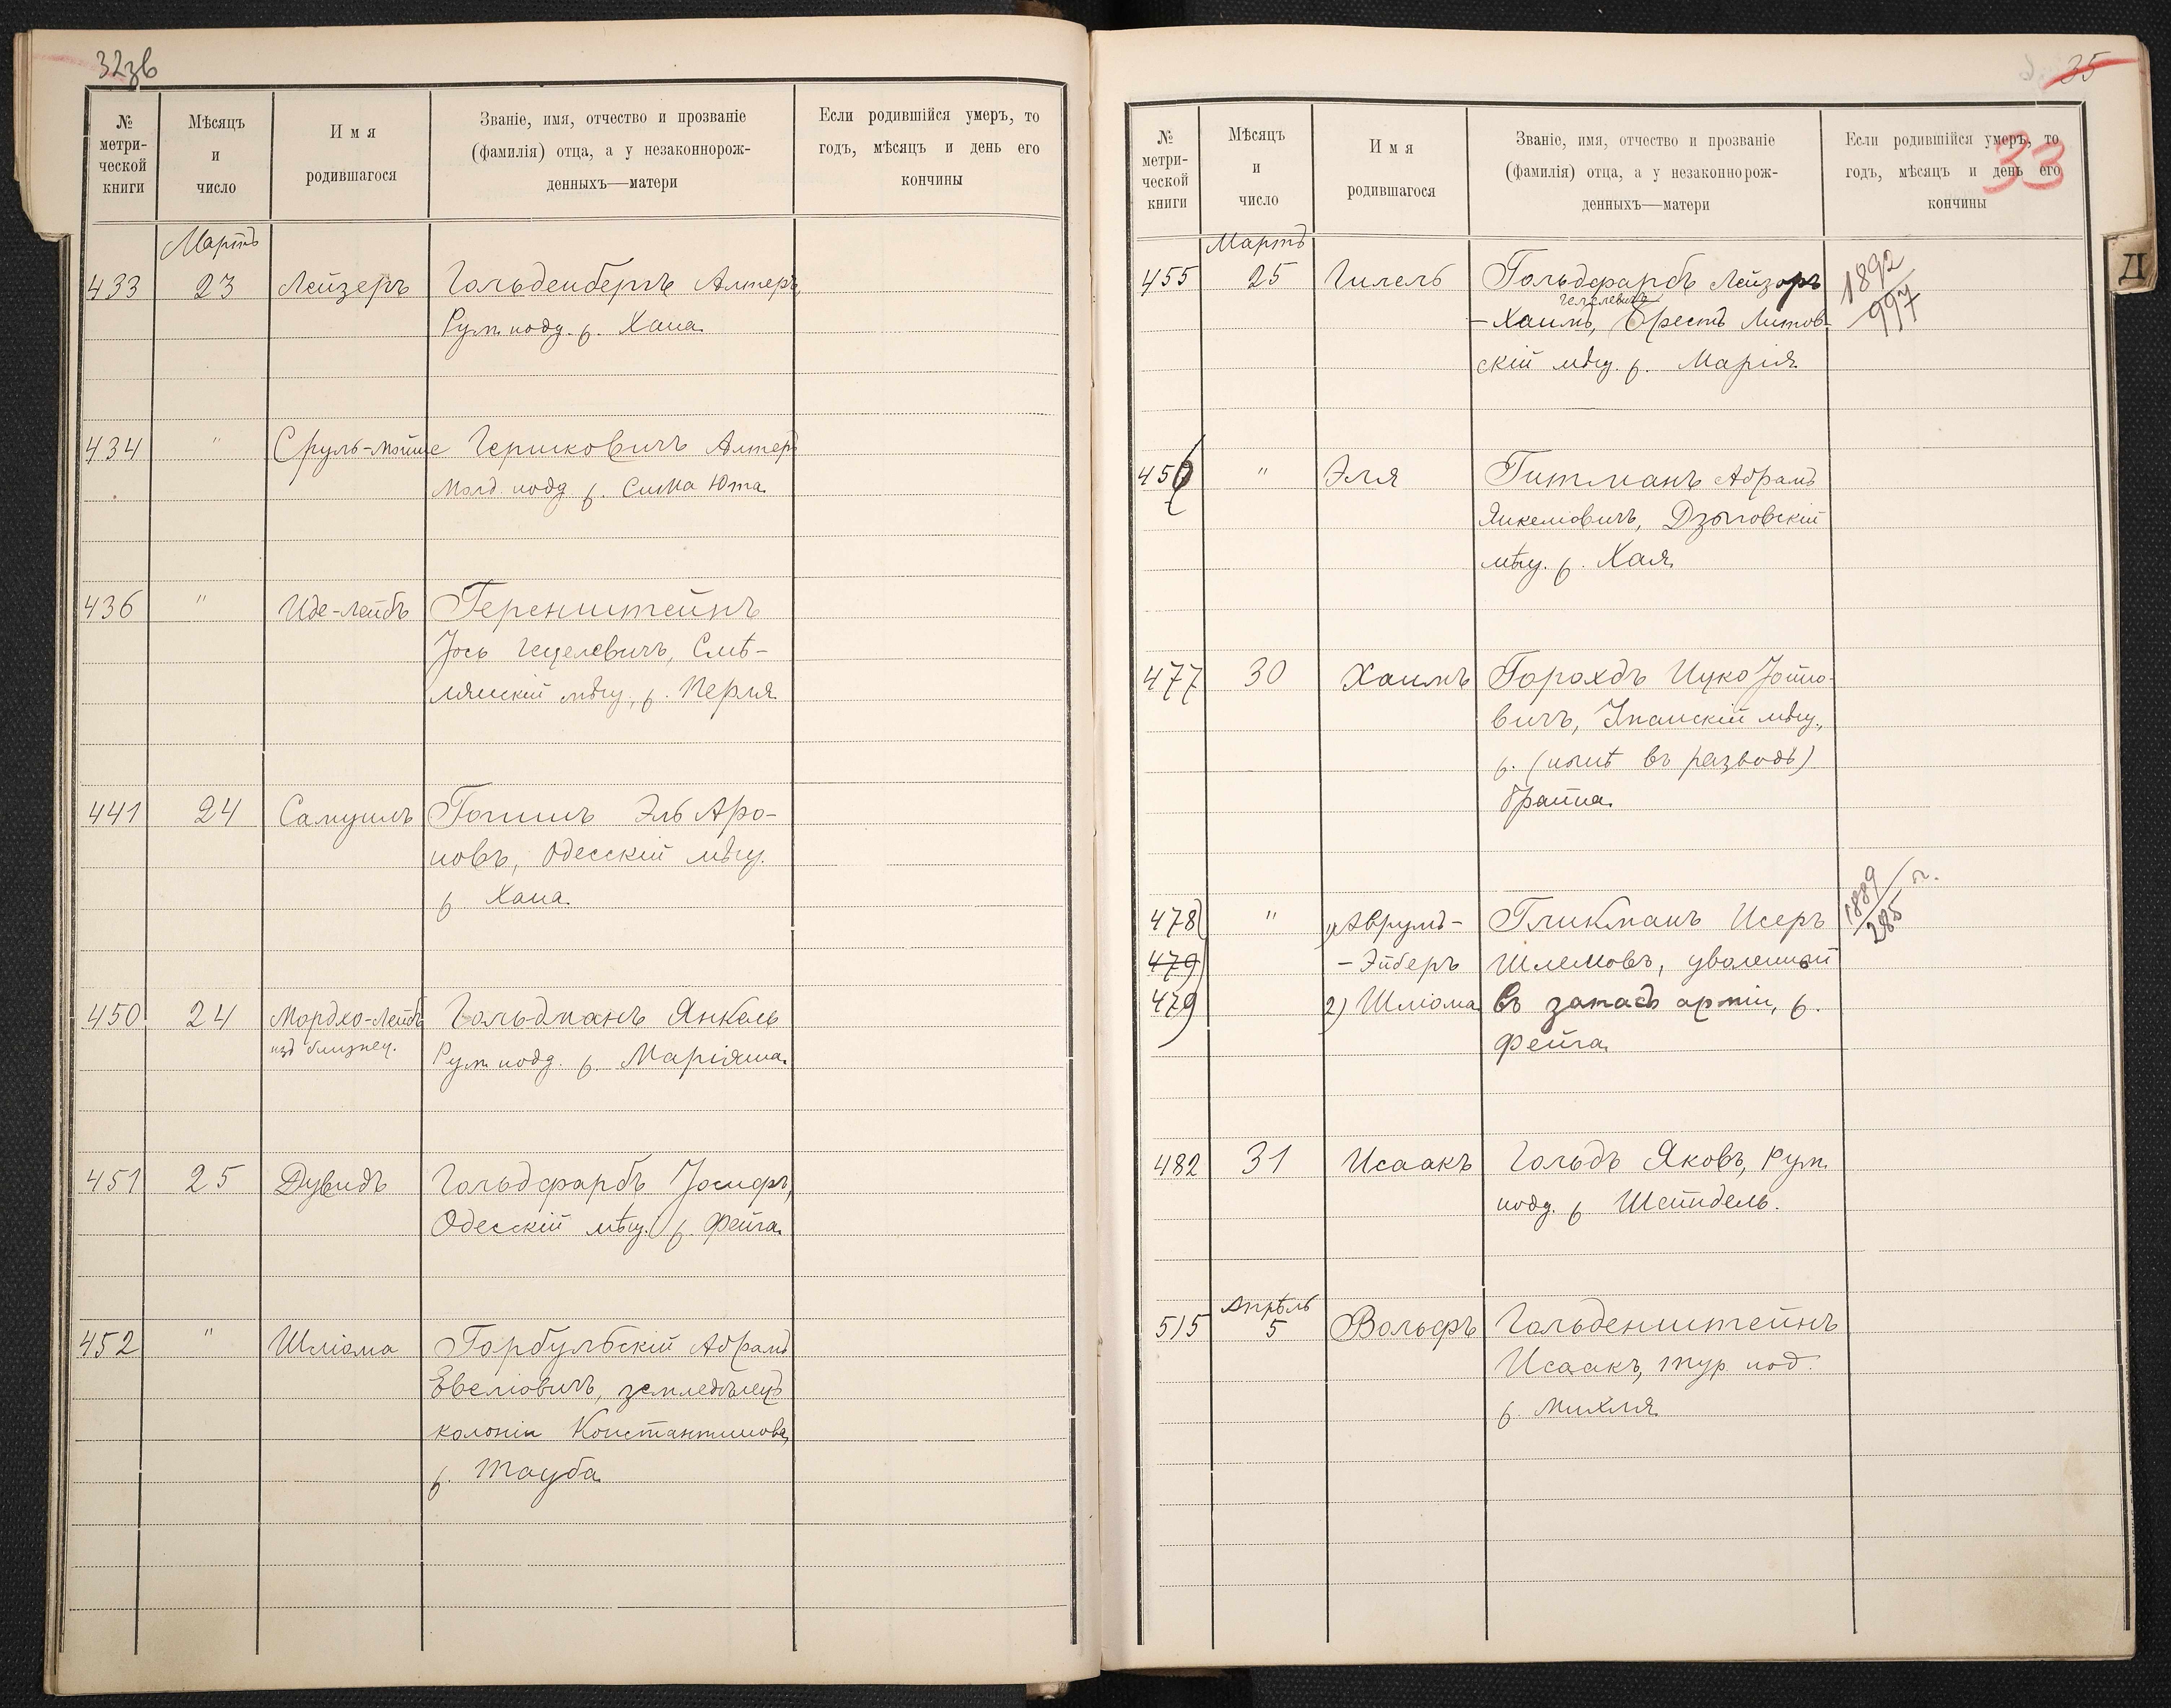 32зв
№ метри-ческой книги
Мѣсяцъ и число
Имя родившагося
Званіе, имя, отчество и прозваніе
(фамилія) отца, а у незаконнорож-
денныхъ—матери
Если родившійся умеръ, то
годъ, мѣсяцъ и день его
кончины
Мартъ
433 23 Лейзеръ Гольденбергъ Алтеръ,
Рум. подд. ж. Хана
434 " Сруль-Мойше Гершковичъ Алтеръ
Молд. подд. ж. Сима Юта
436 " Иде-Лейбъ Геренштейнъ
Іось Гецелевичъ, Смѣ-
лянскій мѣщ., ж. Перля
441 24 Самуилъ Эль Аро-
новъ, Одесскій мѣщ.
ж Хана
450 24 Мордхо-Лейбъ Гольдманъ Янкель
изъ близнец. Рум. подд. ж. Маріяша.
451 25 Дувидъ Гольдфарбъ Іосифъ,
Одесскій мѣщ. ж. Фейга
452 " Шліома Горбульскій Абрамъ
Евеліовичъ, земледѣлецъ
колоніи Константиновка,
ж. Тауба
35
33
№ метри-ческой книги
Мѣсяцъ и число
Имя родившагося
Званіе, имя, отчество и прозваніе
(фамилія) отца, а у незаконнорож-
денныхъ—матери
Если родившійся умеръ, то
годъ, мѣсяцъ и день его
кончины
Д
Мартъ
455 25 Гилель Гольдфарбъ Лейзоръ 1892
997
-Хаимъ, Брестъ Литов-
скій мѣщ. ж. Марія
456 " Эля Гитманъ Абрамъ
Янкеліовичъ, Дзыговскій
мѣщ. ж. Хая
477 30 Хаимъ Гороходъ Ицко Іойно-
вичъ, мѣщ.,
ж. (нынѣ въ разводѣ)
Брайна
478 " 1) Аврумъ- Гликманъ Исеръ 1889 г.
285
479 -Эйберъ Шлемовъ, уволенный
479 2) Шліома въ запасъ арміи, ж.
Фейга
482 31 Исаакъ Гольдъ Яковъ, Рум.
подд. ж Шейндель.
Апрѣль
515 5 Вольфъ Гольденштейнъ
Исаакъ, тур. под.
ж. Михля